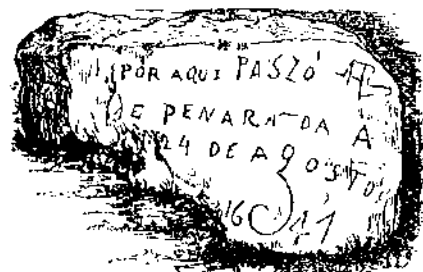 POR AQUI PASZÓ
DE PENARANDA A
24 DE AGOSTO
1641